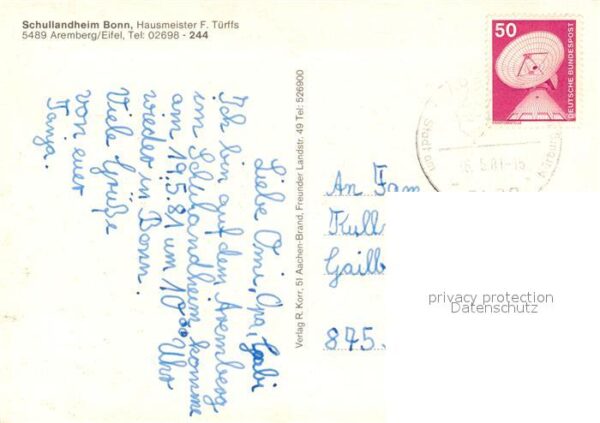 Schullandheim Bonn, Hausmeister F. Türffs
5489 Aremberg/Eifel, Tel: 02698 - 244
Liebe Omi, Opa, Gabi
Ich bin auf dem Aremberg
im Schullandheim komme
am 19.5.81 um 10⁰⁰ Uhr
wieder in Bonn.
Viele Grüße
von euer
Tanja.
Verlag R. Korr, 51 Aachen-Brand, Freunder Landstr. 49 Tel: 526900
50
DEUTSCHE BUNDESPOST
5.81-15
An Fam
Kull
Gailb
875.
privacy protection
Datenschutz